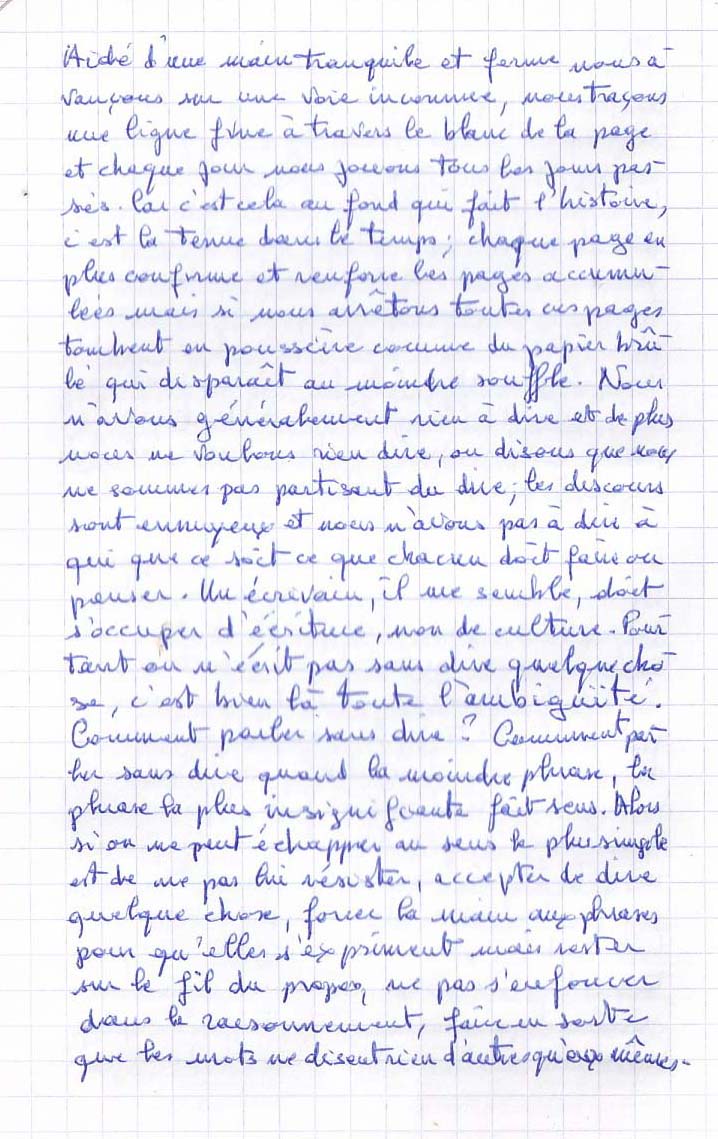 Aidé d'une main tranquile et ferme nous a-
vançons sur une voie inconnue, nous traçons
une ligne fine à travers le blanc de la page
et chaque jour nous jouons tous les jours pas-
sés. Car c'est cela au fond qui fait l'histoire,
c'est la tenue dans le temps ; chaque page en
plus confirme et renforce les pages accumu-
lées mais si nous arrêtons toutes ces pages
tombent en poussière comme du papier brû-
lé qui disparaît au moindre souffle. Nous
n'avons généralement rien à dire et de plus
nous ne voulons rien dire, ou disons que nous
ne sommes pas partisant du dire ; les discours
sont ennuyeux et nous n'avons pas à dire à
qui que ce soit ce que chacun doit faire ou
penser. Un écrivain, il me semble, doit
s'occuper d'écriture, non de culture. Pour-
tant on n'écrit pas sans dire quelque cho-
se, c'est bien là toute l'ambiguïté.
Comment parler sans dire ? Comment par-
ler sans dire quand la moindre phrase, la
phrase la plus insignifiante fait sens. Alors
si on ne peut échapper au sens le plus simple
est de ne pas lui résister, accepter de dire
quelque chose, forcer la main aux phrases
pour qu'elles s'expriment mais rester
sur le fil du propos, ne pas s'enfoncer
dans le raisonnement, faire en sorte
que les mots ne disent rien d'autres qu'eux mêmes.